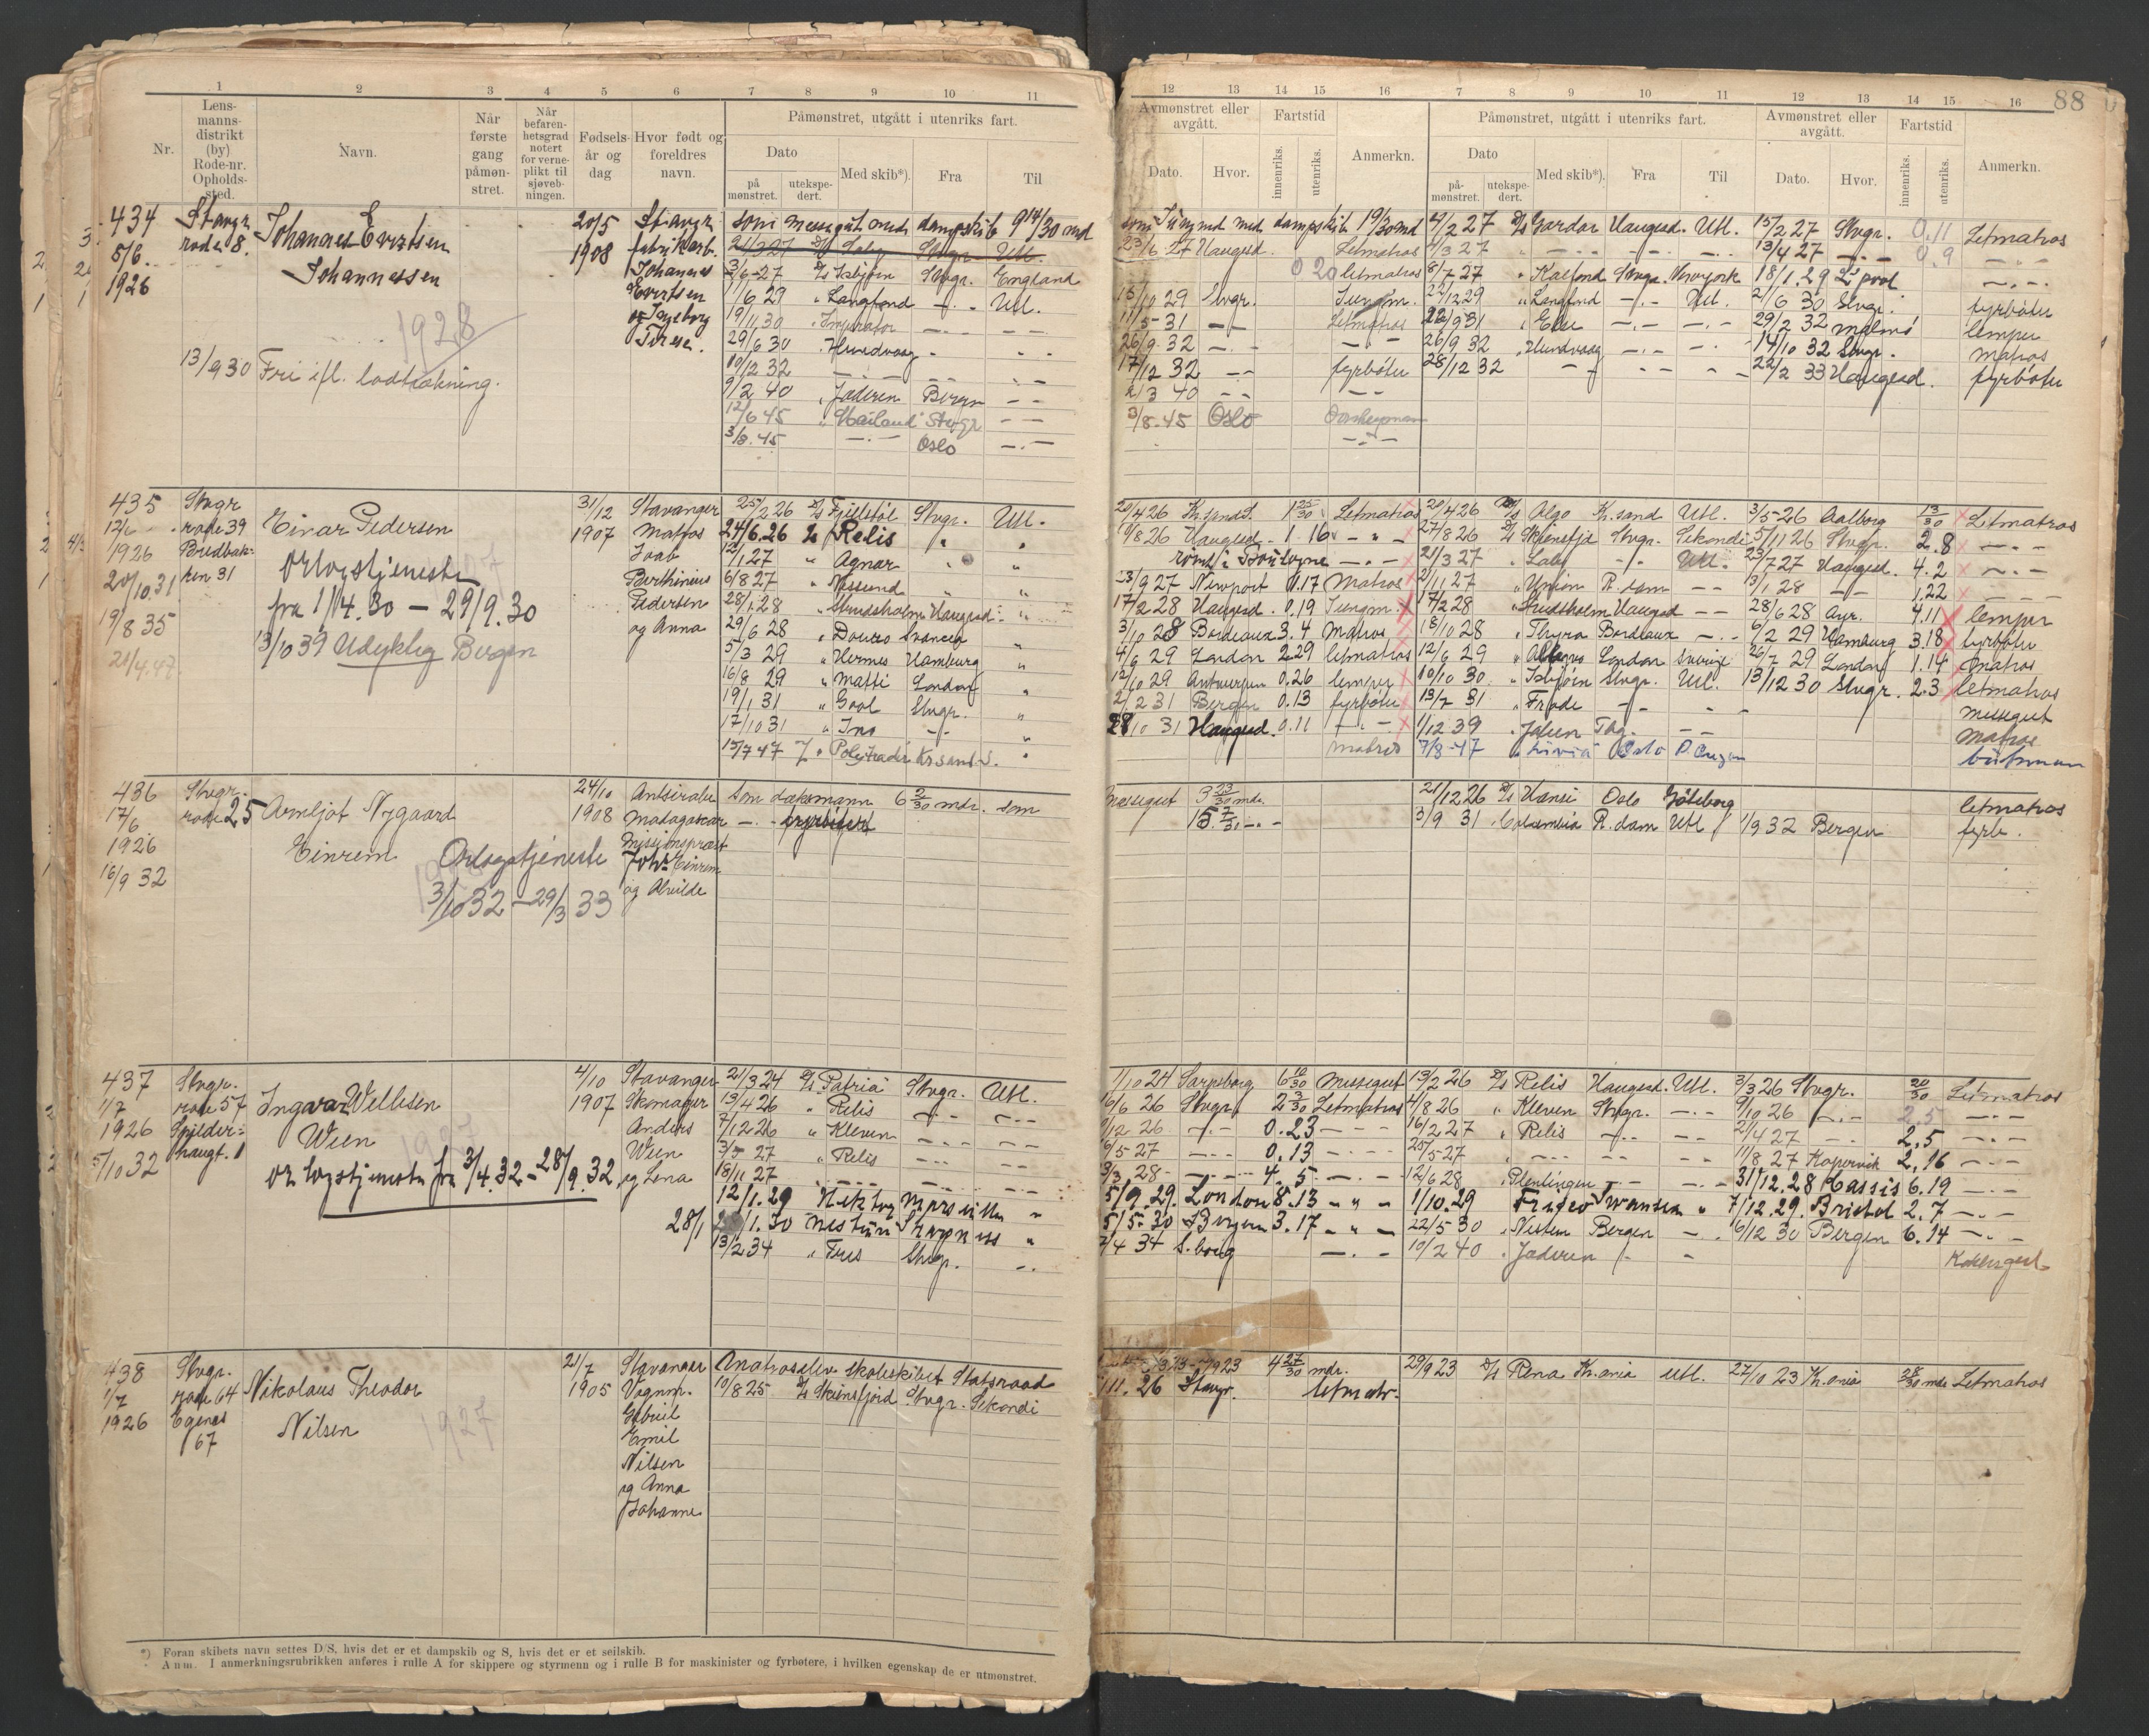 88
1 2 3 4 5 6 7 8 9 10 11
Nr.
Lens-
manns-
distrikt
(by)
Rode-nr.
Opholds-
sted.
Navn.
Når
første
gang
påmøn-
stret.
Når
befaren-
hetsgrad
notert
for verne-
plikt til
sjøveb-
ningen.
Fødsels-
år og
dag
Hvor født og
foreldres
navn.
Påmønstret, utgått i utenriks fart.
Dato
på
mønstret.
utekspe-
dert.
Med skib*).
Fra
Til
12 13 14 15 16 7 8 9 10 11 12 13 14 15 16
Avmønstret eller
avgått.
Dato.
Hvor.
Fartstid
innenriks.
utenriks.
Anmerkn.
Påmønstret, utgått i utenriks fart.
Dato
på-
mønstret.
utekspe-
dert.
Med skib*).
Fra
Til
Avmønstret eller
avgått.
Dato.
Hvor.
Fartstid
innenriks.
utenriks.
Anmerkn.
434
5/6.
1926
Stavgr.
rode 8.
Johannes Evertsen
Johannessen
1928
13/9 30 Fri ifl. lodtrækning.
20/5
1908
Stavgr.
fabrikarb.
Johannes
Evertsen
og Ingeborg
Terese.
som messegut med dampskib 9 14/30 md
21/3 27 D/S Laly Stvgr. Utl.
3/6-27 D/S Isbjørn Stvgr. England
1/6 29 " Langfond -.- Utl.
19/11 30 " Imperator -.- -.-
29/6 30 . Hundvaag - . -
10/12 32 -.- -.- -.-
9/2 40 . Jæderen Bergen - -
12/6 45 " Hailand Stvgr - -
3/8. 45 -.- Oslo -.-
som Jungmd med dampskib 19/30 md
23/6 27 Haugesd. Letmatros
0 20 letmatros
15/10 29 Stvgr. Jungm.
11/5-31 - - Letmatros
26/9 32 -.- - -
17/12 32 -- fyrbøter
2/3 40 - - - -
3/8. 45 Oslo
4/2 27 D/S Gardar Haugesd. Utl. 15/2 27 Stvgr. 0.11 Letmatros
4/3 27 " -.- -.- -.- 13/4 27 -.- 0.9 -.-
8/7 27 " Kalfond Stvgr. Newyork 18/1. 29 L'pool -.-
22/12 29 " Langfond -.- Utl. 2/6 30 Stvgr. fyrbøter
22/9 31 " Elsu -.- -.- 29/2 32 Malmö lemper
26/9 32 " Hundvaag -.- -.- 14/10 32 Stvgr. matros
28/12 32 - - - - - - 22/2 33 Haugesd. fyrbøter
435
12/6
1926
20/10.31
19/8 35
21/4.47
Stvgr
rode 39
Bredbak-
ken 31
Einar Pedersen
Orlogstjeneste
fra 1/4.30 - 29/9.30
13/10 39 Udyktig Bergen
31/12
1907
Stavanger
Matros
Joab
Parthinius
Pedersen
og Anna
25/2 26 D/S Fjeldstøl Stvgr. Utl.
24/6.26 " Relis " "
12/1 27 " Agnar " "
6/8 27 " Nessund " "
28/1-28 " Strudsholm Haugesd "
29/6 28 " Douro Svansea "
5/3 29 " Hermes Hamburg "
16/8 29 " Matti London "
19/1 31 " Goal Stvgr. "
17/10 31 " Ino -.- "
15/7 47 " Polytrader Kr sand S. "
20/4 26 Kr.sandS. 1 25/30 Letmatros
10/8 26 Haugesd. 1.16 - " -
rømt i Boulogne -.-
23/9 27 Newport 1.17 Matros
17/2 28 Haugesd. 0.19 Jungm.
3/10 28 Bordeaux 3.4 Matros
4/6 29 London 2.29 letmatros
12/10 29 Antwerpen 0.26 lemper
2/2 31 Bergen 0.13 fyrbøter
28/10 31 Haugesd. 0.11 -.-
matros
20/4 26 D/S Algo Kr.sand Utl. 3/5-26 Aalborg 13/30 Letmatros
27/8 26 D/S Skiensfjd Stvgr. Sekondi 5/11 26 Stvgr. 2.8 -.-
21/3 27 " Laly -.- Utl. 23/7 27 Haugesd. 4.2 -.-
2/11 27 " Union R.dam -- 13/1 28 -- 1,22 - - -
17/2 28 " Strudsholm Haugesd -- 28/6 28 Ayr. 4.11 lemper
18/10 28 " Thyra Bordeaux -.- 6/2 29 Hamburg 3.18 fyrbøter
12/6 29 London Sverige 26/7 29 London 1.14 matros
10/10 30. " Isbjørn Stvgr. Utl. 13/12 30 Stvgr. 2.3 letmatros
13/2 31 " Frode -.- - - messegut
1/12 39 . Jølun - - Matros
7/8-47 " Livia Oslo baatsman
436
17/6
1926
16/9 32
Stvgr.
rode 25
Arnljot Nygaard
Einrem
Orlogstjeneste
3/10 32 - 29/3 33
24/10
1908
Antsirabe
Madagascar
Missionsprest
Johs Einrem
og Alvilde
som dæksmann 6 2/30 mdr. som
-.- fyrbøter
messegut 3 23/30 mdr.
15. 7/30 - -
21/12 26 D/S Hansi Oslo Göteborg letmatros
3/9 31 " Columbia R.dam Utl 1/9 32 Bergen fyrb.
437
1/7
1926
5/10 32
Stvgr.
rode 57
Spilder-
haugt. 1
Ingvar Wellesen
Wien
Orlogstjeneste fra 3/4.32 - 28/9.32
4/10
1907
Stavanger
Skomager
Anders
Wien
og Lena
21/3 24 D/S "Patria" Stvgr. Utl.
13/4 26 " Relis -.- -.-
7/12 26 " Kleven -.- -.-
3/3 27 " Relis -.- -.-
18/11 27 -.- -.- -.-
12/1.29 Hektor Marseille "
28/1 /1.30 Nestun Sharpness "
13/2 34 " Fris Stvgr. -.
1/10 24 Sarpsborg 6 10/30 Messegut
16/6 26 Stvgr. 2 3/30 Letmatros
/12 26 -.- 0.23 - - -
6/5-27 -.- 0.13 -.-
3/3 28 - -.- 4.5 -.-
5/9.29. London 8.13 - " -
5/5-30 Bergen 3.17 - " -
/4 34 S.borg -.-
13/2 26 D/S Relis Haugesd. Utl. 3/3 26 Stvgr. 20/30 Letmatros
4/8 26 " Kleven Stvgr. -.- 9/10 26 -.- 2,5 -.-
16/2 27 " Relis -.- -- 21/4 27 -- 2.5 -.-
25/5-27 " -.- -- -- 11/8 27 Kopervik 2,16 -.-
12/6 28 Plentingen -- -.- 31/12.28 Cassis 6.19 -.-
1/10.29 Swansea " 7/12.29. Bristol 2.7 -.-
22/5 30 " Nestun Bergen -. 16/12 30 Bergen 6.14 -.-
10/2 40 " Jæderen - -
438
1/7
1926
Stvgr.
rode 64
Egenes
67
Nikolaus Theodor
Nilsen
1927
21/7
1905
Stavanger
Vognm.
Gabriel
Emil
Nilsen
og Anna
Johanne
Matroselev skoleskibet Statsraad
10/8 25 D/S Skiensfjord Stvgr. Sekondi
4 27/30 mdr.
/11. 26 Stavgr. letmatr.
29/9 23 D/S Rena Kr.ania Utl. 27/10 23 Kr.ania 28/30 mdr Letmatros
*) Foran skibets navn settes D/S, hvis det er et dampskib og S, hvis det er et seilskib.
Anm. I anmerkningsrubrikken anføres i rulle A for skippere og styrmenn og i rulle B for maskinister og fyrbøtere, i hvilken egenskap de er utmønstret.